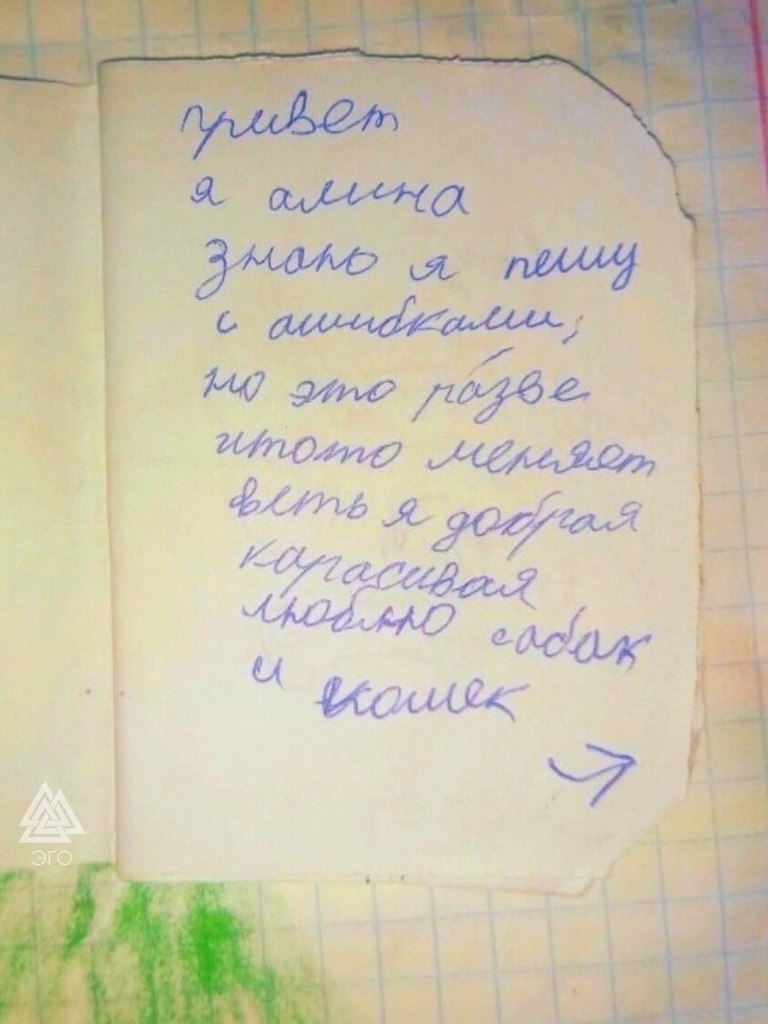 привет
я алина
знаю я пешу
с ашибками,
но это разве
штото меняет
веть я добрая
карасивая
люблю собак
и кошек
ЭГО